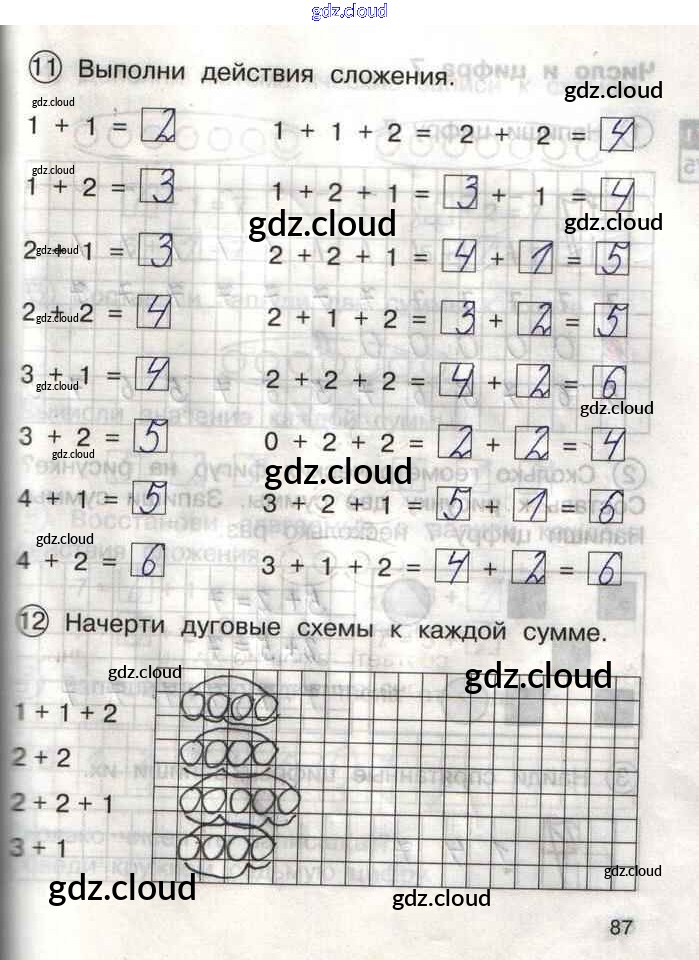 gdz.cloud
11 Выполни действия сложения.
gdz.cloud
gdz.cloud
1 + 1 = 2 1 + 1 + 2 = 2 + 2 = 4
gdz.cloud
1 + 2 = 3 1 + 2 + 1 = 3 + 1 = 4
gdz.cloud gdz.cloud
2 + 1 = 3 2 + 2 + 1 = 4 + 1 = 5
gdz.cloud
2 + 2 = 4 2 + 1 + 2 = 3 + 2 = 5
gdz.cloud
3 + 1 = 4 2 + 2 + 2 = 4 + 2 = 6
gdz.cloud
gdz.cloud
3 + 2 = 5 0 + 2 + 2 = 2 + 2 = 4
gdz.cloud
gdz.cloud
4 + 1 = 5 3 + 2 + 1 = 5 + 1 = 6
gdz.cloud
4 + 2 = 6 3 + 1 + 2 = 4 + 2 = 6
12 Начерти дуговые схемы к каждой сумме.
gdz.cloud gdz.cloud
1 + 1 + 2
2 + 2
2 + 2 + 1
3 + 1
gdz.cloud
gdz.cloud gdz.cloud
87